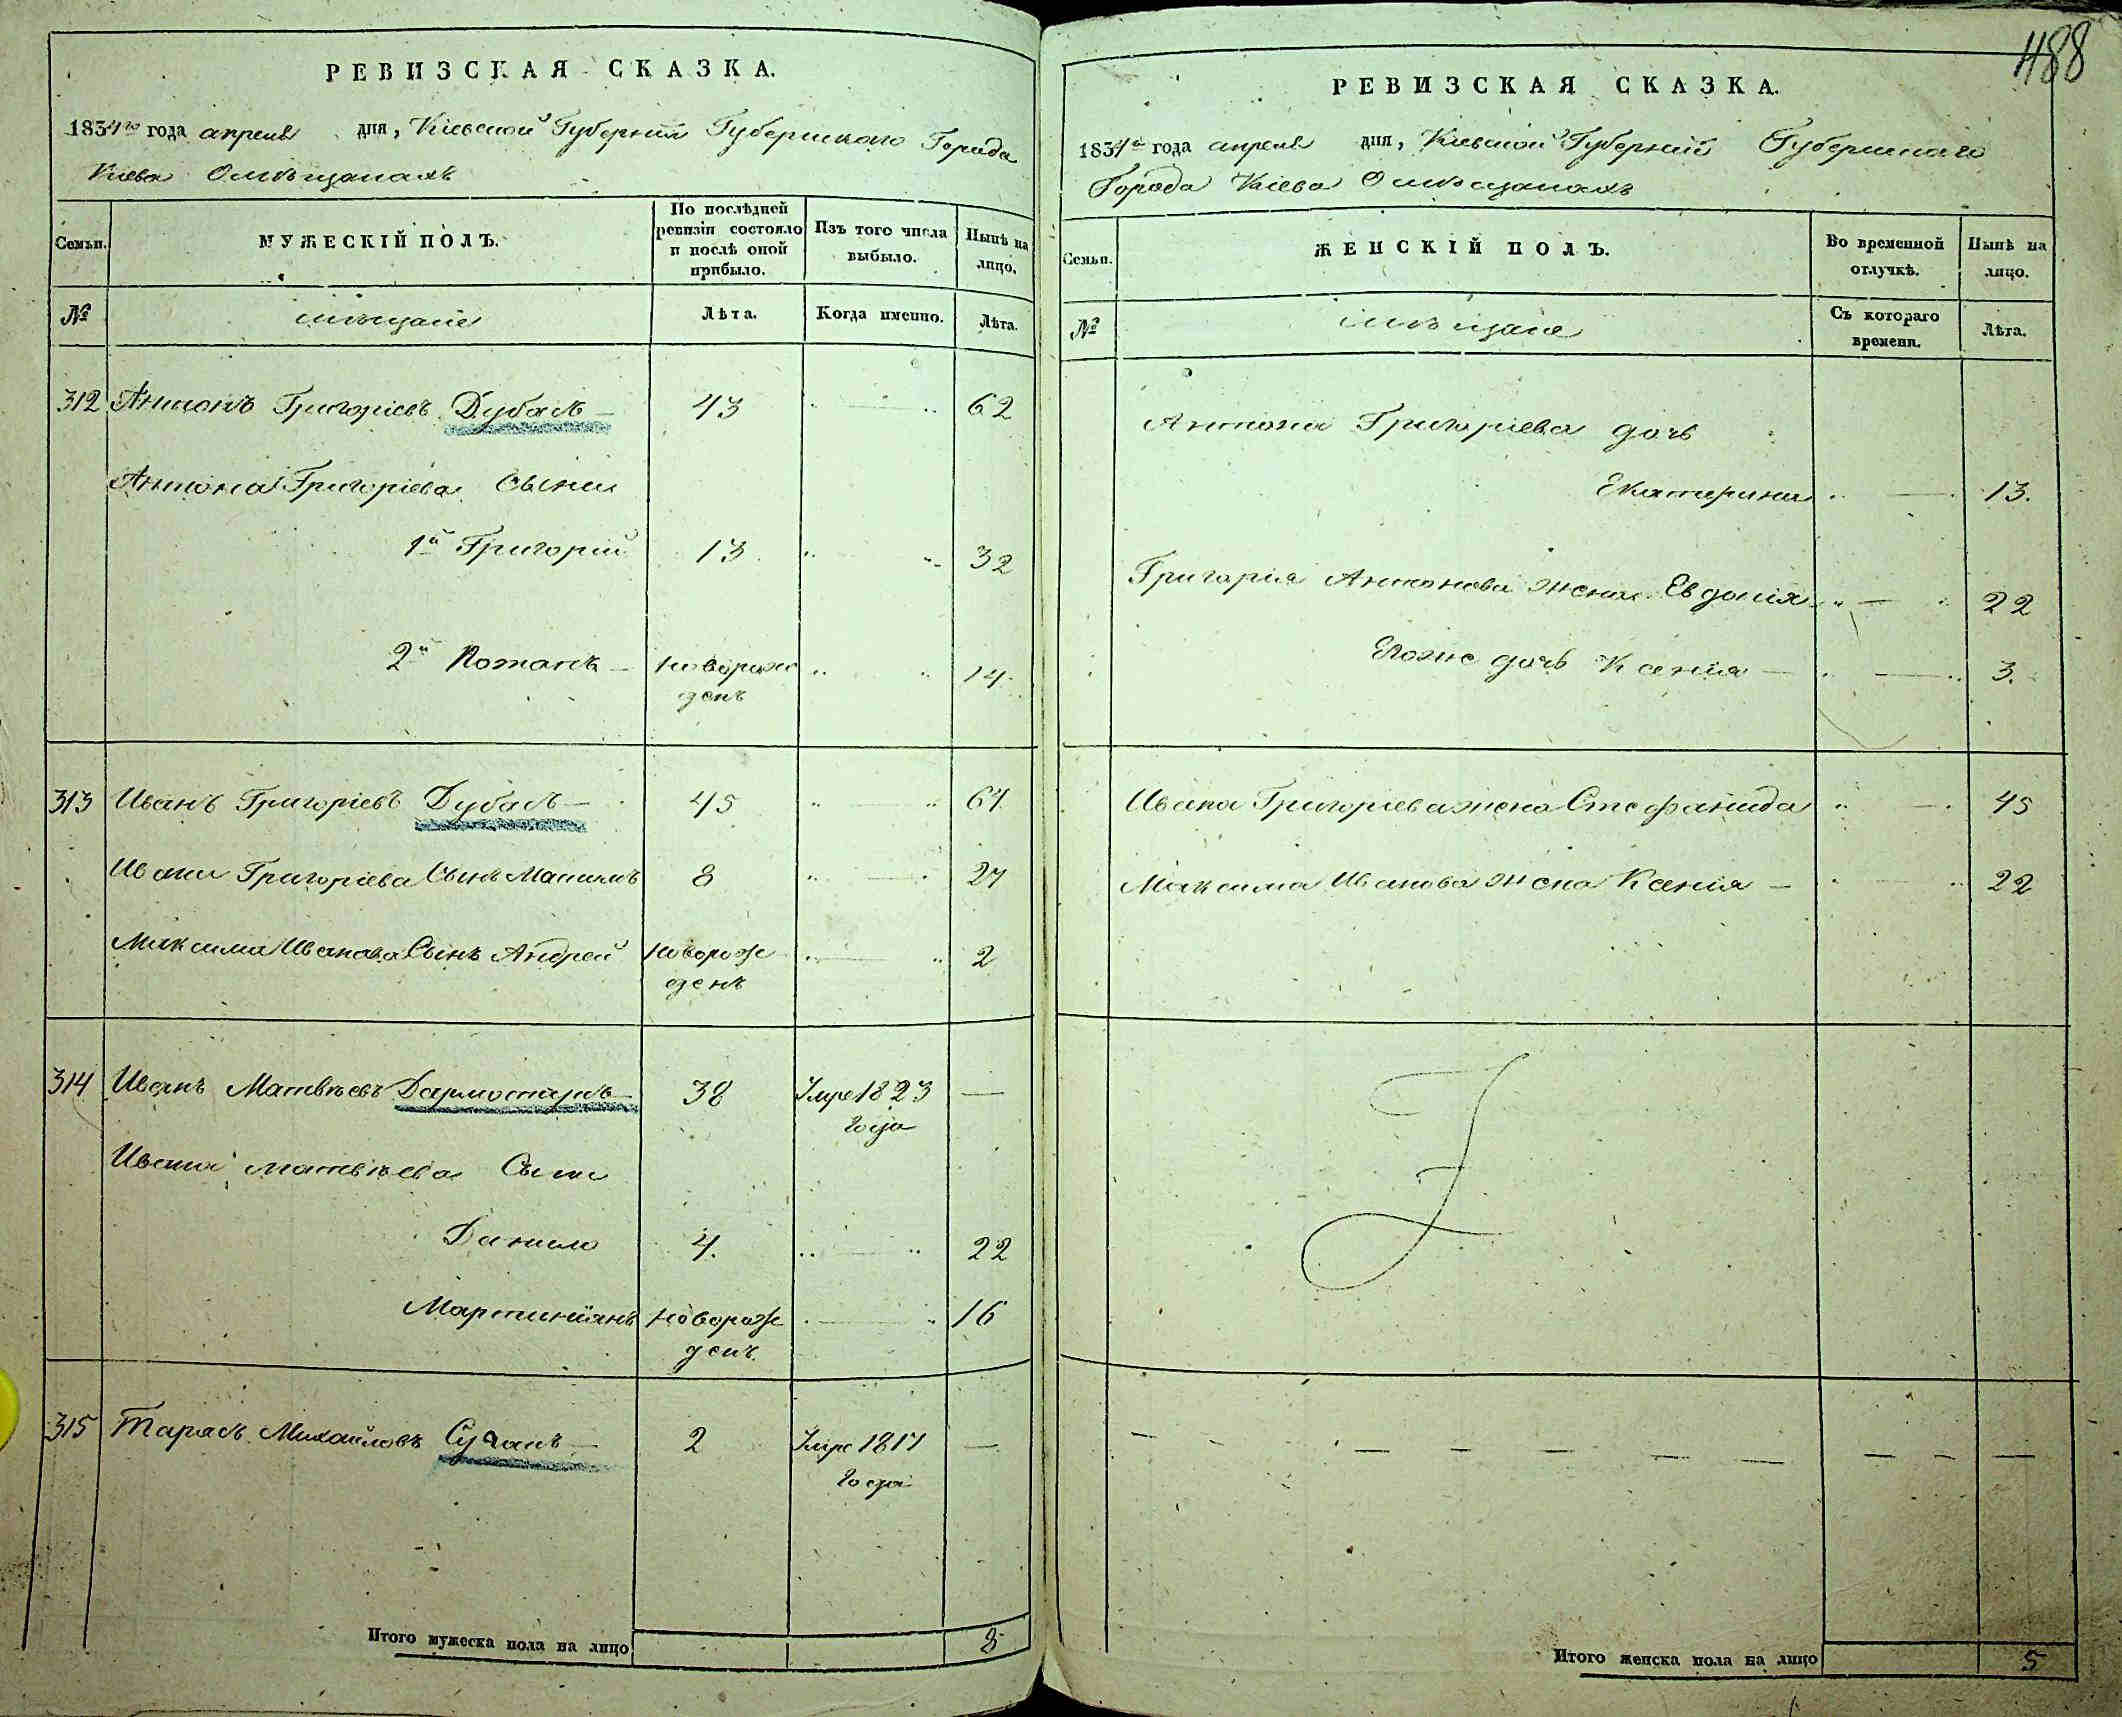 488
РЕВИЗСКАЯ СКАЗКА.
1834го года апреля дня, Кіевской Губерніи Губернскаго Города
Кіева О мѣщанахъ
Семьи.
МУЖЕСКІЙ ПОЛЪ.
По послѣдней ревизіи состояло и послѣ оной прибыло.
Изъ того числа выбыло.
Нынѣ на лицо.
№
мѣщане
Лѣта.
Когда именно.
Лѣта.
312 Антонъ Григоріевъ Дубаль 43 62
Антона Григоріева Сыны
1й Григорій 13 32
2й Романъ новорож 14
денъ
313 Иванъ Григоріевъ Дубаль 45 64
Ивана Григоріева Сынъ Максимъ 8 27
Максима Иванова Сынъ Андрей новорож 2
денъ
314 Иванъ Матвѣевъ Дармостаръ 38 Умре 1823 —
года
Ивана Матвѣева Сыны
Данило 4. 22
Мартиніянъ новорож 16
денъ
315 Тарасъ Михайловъ 2 Умре 1817 —
года
Итого мужеска пола на лицо 8
РЕВИЗСКАЯ СКАЗКА.
1834го года апреля дня, Кіевской Губерніи Губернскаго
Города Кіева О мѣщанахъ
Семьи.
ЖЕНСКІЙ ПОЛЪ.
Во временной отлучкѣ.
Нынѣ на лицо.
№
мѣщане
Съ котораго времени.
Лѣта.
Антона Григоріева дочь
Екатерина 13.
Григорія Антонова жена Евдокія 22
Егоже дочь Ксенія 3.
Ивана Григоріева жена Стефанида 45
Максима Иванова жена Ксенія 22
Итого женска пола на лицо 5